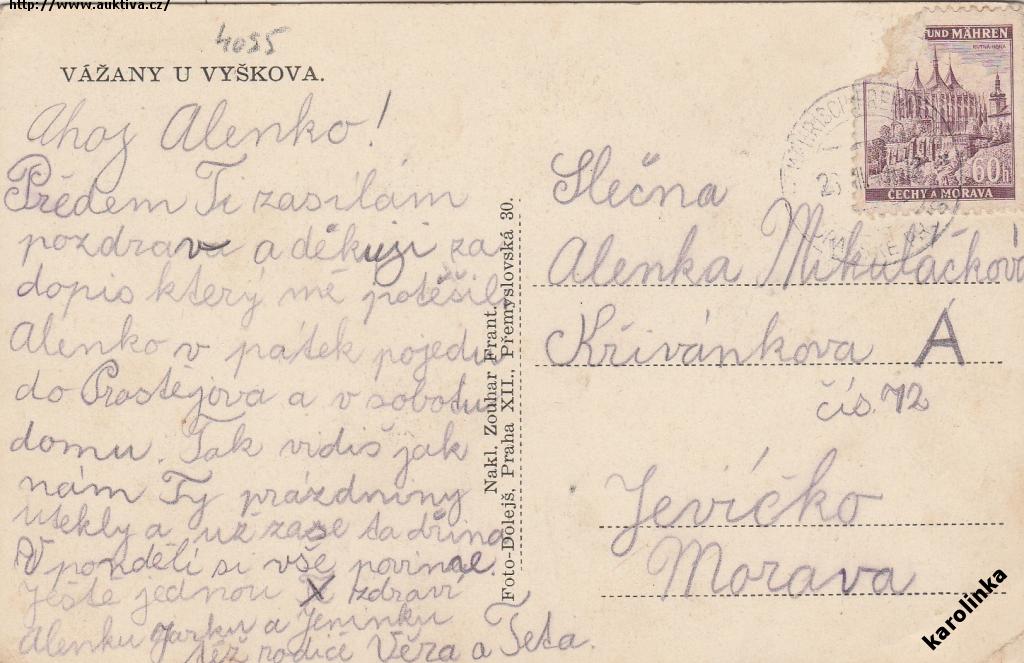 http://www.auktiva.cz/
4095
VÁŽANY U VYŠKOVA.
Ahoj Alenko!
Předem Ti zasílám
pozdrav a děkuji za
dopis který mě potěšil
Alenko v pátek pojedu
do Prostějova a v sobotu
domu. Tak vidiš jak
nám Ty prázdniny
utekly a už zase ta dřina
V pondělí si vše povíme.
Ještě jednou zdraví
Alenku Jarku a Jeninku
též rodiče Věra a Teta.
Nakl. Zouhar Frant.
Foto-Dolejš, Praha XII., Přemyslovská 30.
UND MÄHREN
KUTNÁ HORA
60h
ČECHY A MORAVA
Slečna
Alenka Mikuláčková
Křivánkova A
čís. 72
Jevíčko
Morava
karolinka